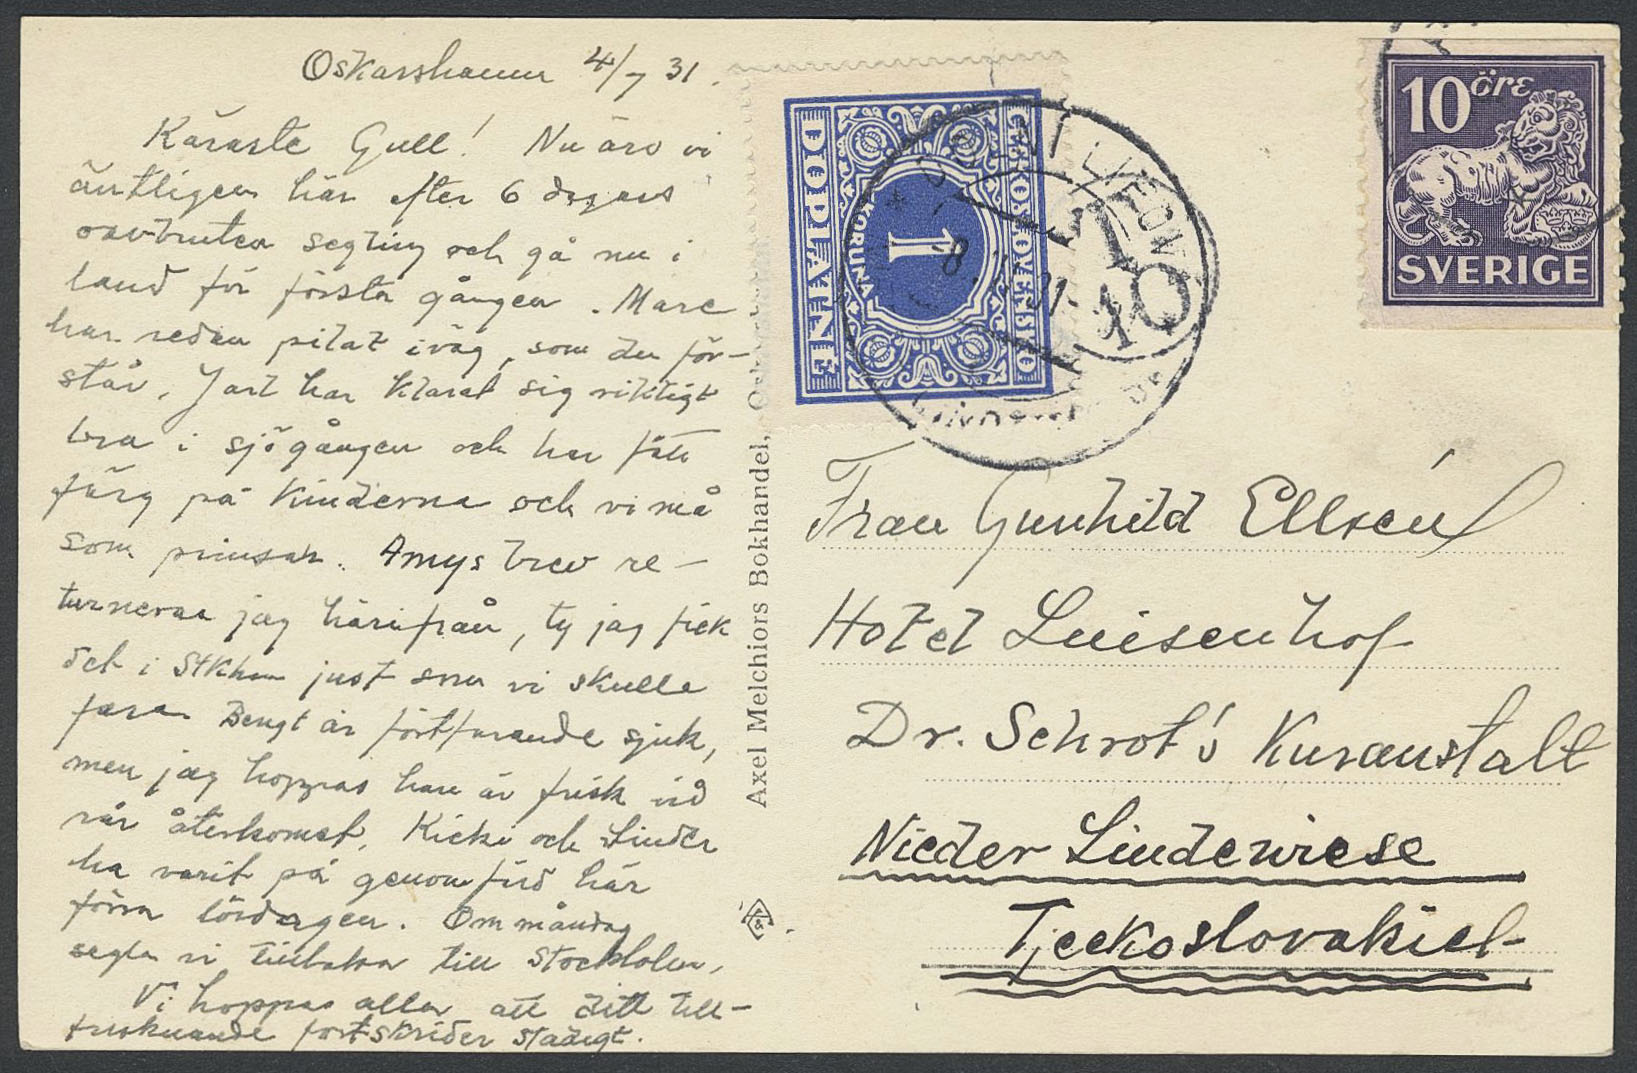 Oskarshamn 4/7 31.
Käraste Gull! Nu äro vi
äntligen här efter 6 dagars
oavbruten segling och gå nu i
land för första gången. Marc
har redan pilat iväg, som du för-
står. Jarl har klarat sig riktigt
bra i sjögången och har fått
färg på kinderna och vi må
som prinsar. Amys brev re-
turneras jag härifrån, ty jag fick
det i Stkhm just som vi skulle
fara. Bengt är fortfarande sjuk,
men jag hoppas han är frisk vid
vår återkomst. Kicki och Linder
ha varit på genomfärd här
förra lördagen. Om måndag
segla vi tillbaka till Stockholm.
Vi hoppas alla att ditt till-
frisknande fortskrider stadigt.
Axel Melchiors Bokhandel,
ČESKOSLOVENSKO
1
KORUNA
DOPLATNÉ
10 öre
SVERIGE
Frau Gunhild Ellsén
Hotel Luisenhof
Dr. Schrot's Kuranstalt
Nieder Lindewiese
Tjeckoslovakiet